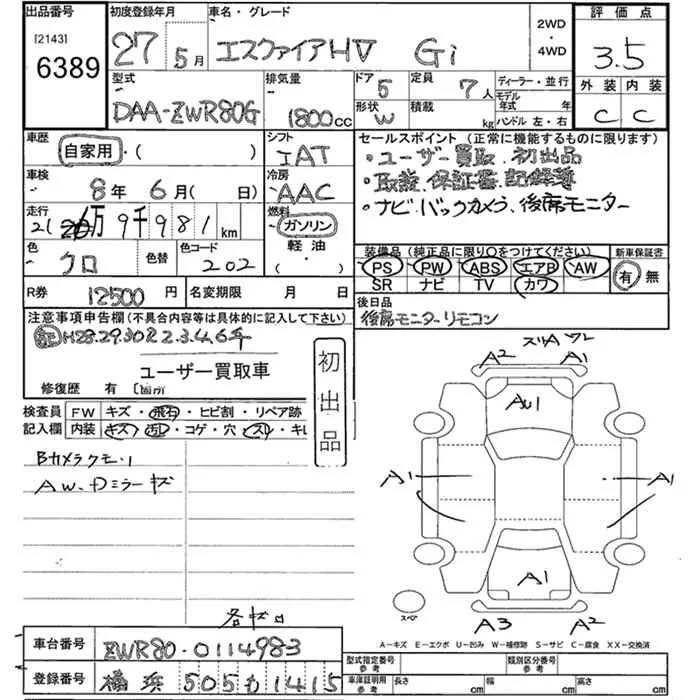 出品番号
[2143]
6389
初度登録年月
27 5月
車名・グレード
エスクァイアHV Gi
2WD
・
4WD
評価点
3.5
外装 内装
C C
型式
DAA-ZWR80G
排気量
1800cc
ドア
5
定員
7人
形状
W
積載
kg
ディーラー・並行
モデル年式 年
ハンドル 左・右
車歴
自家用・( )
シフト
IAT
車検
8年 6月( 日)
冷房
AAC
走行
万9千981km
燃料
ガソリン
軽油・
( )
色
クロ
色替
色コード
202
R券
12500円
名変期限 月 日
セールスポイント(正常に機能するものに限ります)
・ユーザー買取、初出品
・取説、保証書、記録簿
・ナビ、バックカメラ、後席モニター
装備品(純正品に限り○をつけてください)
PS PW ABS エアB AW
SR ナビ TV カワ
新車保証書
有 無
後日品
後席モニターリモコン
注意事項申告欄(不具合内容等は具体的に記入して下さい)
H28.29.30R2.3.4.6年
ユーザー買取車
修復歴 有 〔箇所
初出品
検査員記入欄
FW キズ・飛石・ヒビ割・リペア跡
内装 キズ・汚レ・コゲ・穴・スレ・キレ
Bカメラクモリ
AW、Dミラーキズ
A2 A1
AU1
A1 A1
A1
A3 A2
スペア
各キロ
A-キズ E-エクボ U-凹み W-補修跡 S-サビ C-腐食 XX-交換済
車台番号
ZWR80-0114983
登録番号
横浜 505 カ 1415
型式指定番号
参考
類別区分番号
参考
車庫証明用
参考
長さ cm 幅 cm 高さ cm